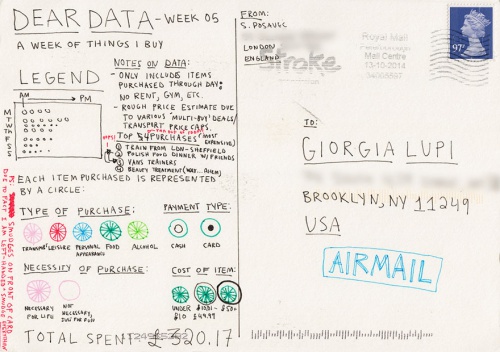 DEAR DATA - WEEK 05
A WEEK OF THINGS I BUY
LEGEND
AM → PM
M
T
W
Th
F
S
S
NOTES ON DATA:
- ONLY INCLUDE ITEMS
PURCHASED THROUGH DAY:
NO RENT, GYM, ETC.
- ROUGH PRICE ESTIMATE DUE
TO VARIOUS 'MULTI-BUY' DEALS/
TRANSPORT PRICE CAPS.
TOP 4 PURCHASES (MOST
EXPENSIVE)
1 TRAIN FROM LDN-SHEFFIELD
2 POLISH FOOD DINNER W/FRIENDS
3 VANS TRAINERS
4 BEAUTY TREATMENT (WAX...AHEM)
EACH ITEM PURCHASED IS REPRESENTED
BY A CIRCLE:
TYPE OF PURCHASE:
TRANSPORT
LEISURE
PERSONAL
APPEARANCE
FOOD
ALCOHOL
PAYMENT TYPE:
CASH
CARD
NECESSITY OF PURCHASE:
NECESSARY
FOR LIFE
NOT
NECESSARY,
JUST FOR FUN
COST OF ITEM:
UNDER
£10
£10.01-
£49.99
£50+
TOTAL SPENT £320.17
PS: SMUDGES ON FRONT OF CARD
DUE TO FACT I AM LEFT-HANDED
FROM:
S. POSAVEC
LONDON
ENGLAND
Royal Mail
Mail Centre
13-10-2014
97P
TO:
GIORGIA LUPI
BROOKLYN, NY 11249
USA
AIRMAIL